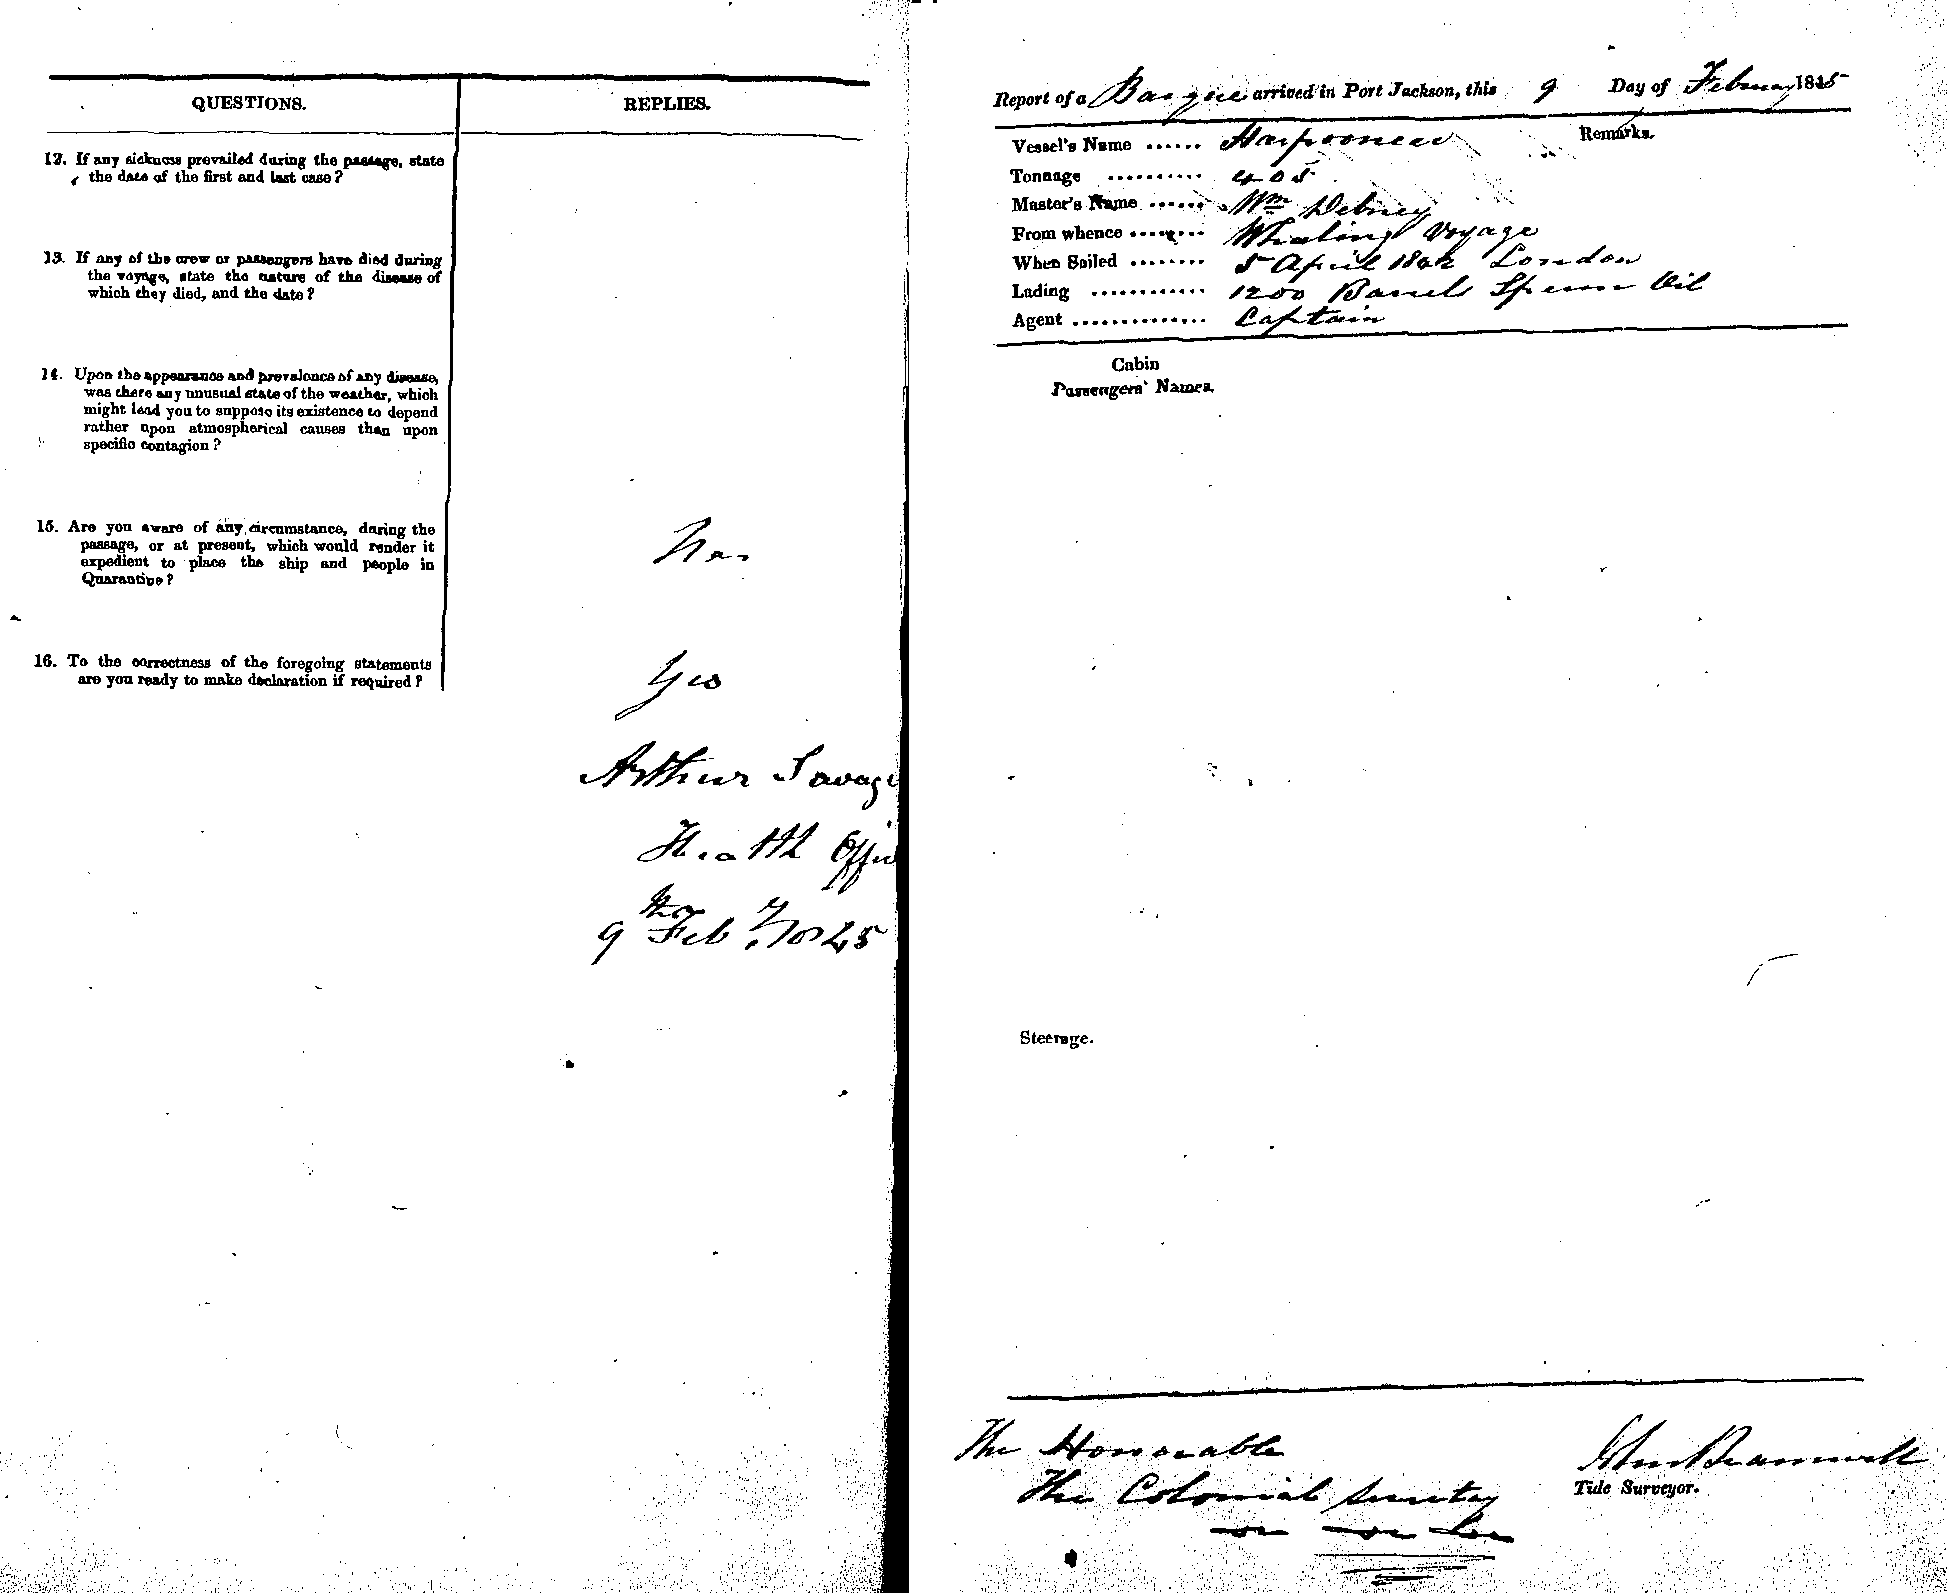 QUESTIONS.
REPLIES.
12. If any sickness prevailed during the passage, state
the date of the first and last case?
13. If any of the crew or passengers have died during
the voyage, state the nature of the disease of
which they died, and the date?
14. Upon the appearance and prevalence of any disease,
was there any unusual state of the weather, which
might lead you to suppose its existence to depend
rather upon atmospherical causes than upon
specific contagion?
15. Are you aware of any circumstance, during the
passage, or at present, which would render it
expedient to place the ship and people in
Quarantine?
No.
16. To the correctness of the foregoing statements
are you ready to make declaration if required?
Yes
Arthur Savage
Health Offic
9th Feby. 1845
Report of a Barque arrived in Port Jackson, this 9 Day of February 1845
Remarks.
Vessel's Name ...... Harpooneer
Tonnage .......... 405
Master's Name ...... Wm Debney
From whence ........ Whaling Voyage
When Sailed ........ 5 April 1842 London
Lading ............ 1200 Barrels Sperm Oil
Agent .............. Captain
Cabin
Passengers' Names.
Steerage.
The Honorable
The Colonial Secretary
John Bramwell
Tide Surveyor.